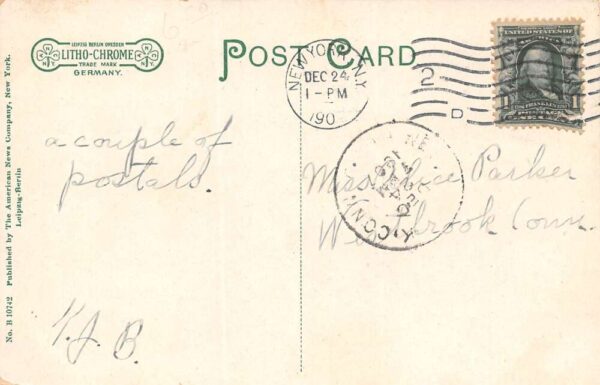 LEIPZIG BERLIN DRESDEN
LITHO-CHROME
TRADE MARK
GERMANY.
N.Y.
POST CARD
NEW YORK, N.Y.
DEC 24
1-PM
190
2
D
UNITED STATES OF
FRANKLIN
1
1
CONN
a couple of
postals.
V.J.B.
Miss Alice Parker
Westbrook Conn.
No. B 10742 Published by The American News Company, New York.
Leipzig-Berlin